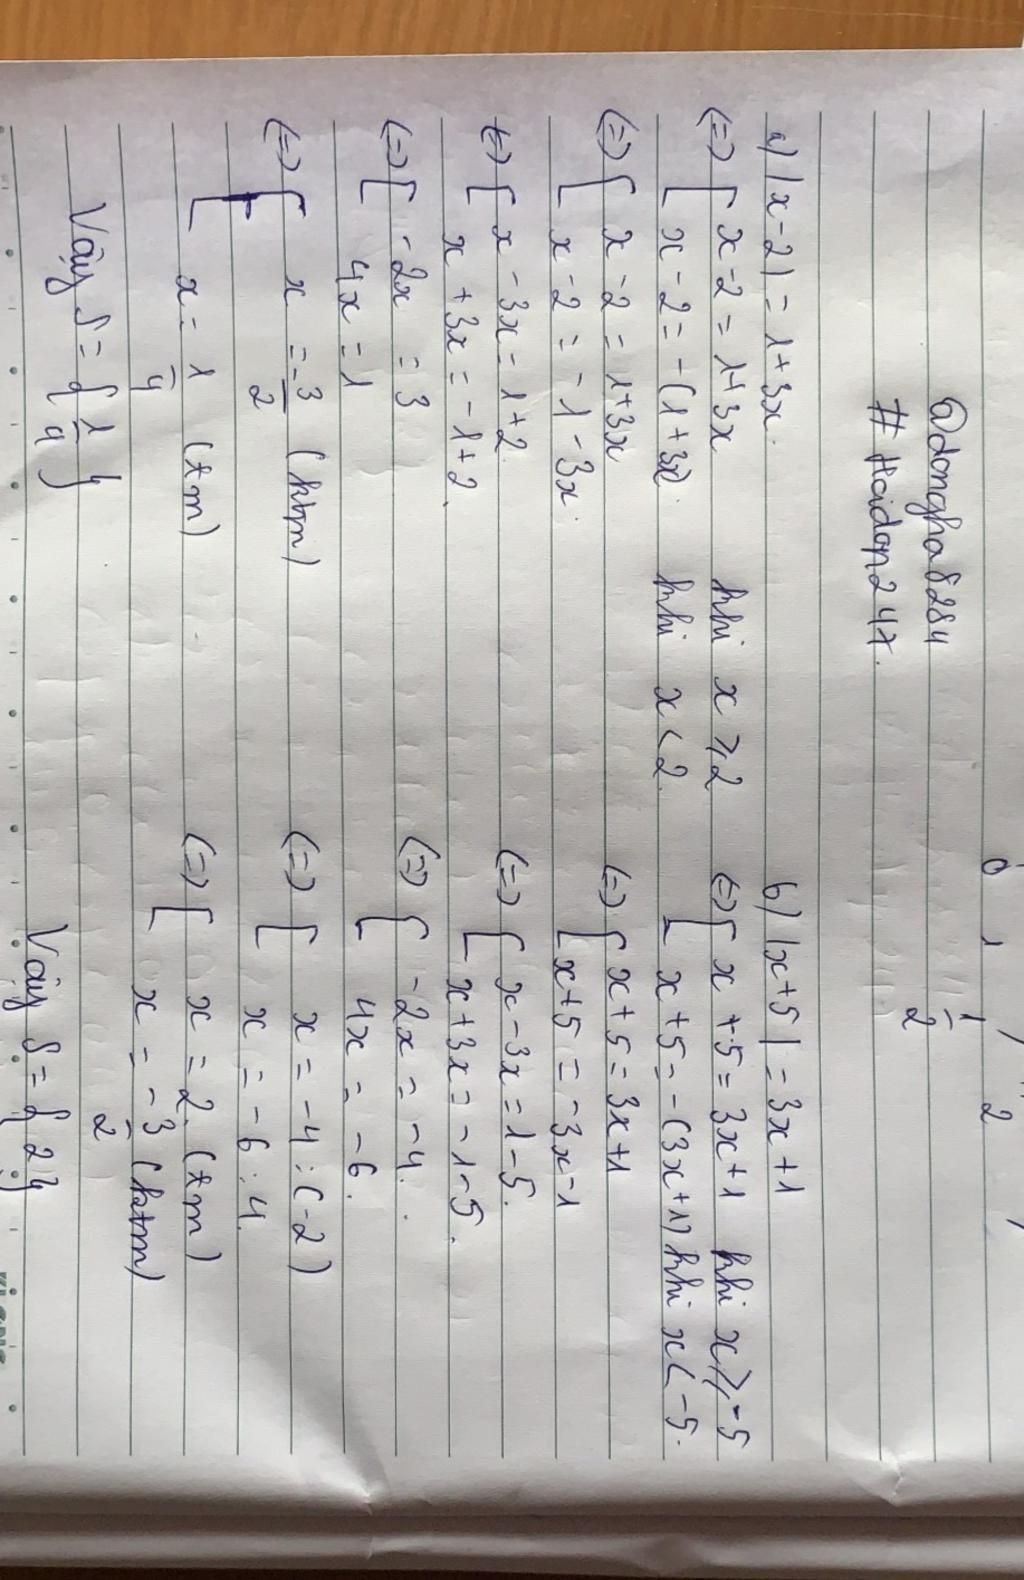 0 1 1/2 2
@dongha8284
# Hoidap247.
a) |x-2| = 1+3x.
(=) [ x-2 = 1+3x khi x ≥ 2
[ x-2 = -(1+3x). khi x < 2.
(=) [ x-2 = 1+3x
[ x-2 = -1-3x.
(=) [ x-3x = 1+2.
x+3x = -1+2.
(=) [ -2x = 3
4x = 1
(=) [ x = -3/2 (ktm)
[ x = 1/4 (tm)
Vậy S = { 1/4 }
b) |x+5| = 3x+1
(=) [ x+5 = 3x+1 khi x ≥ -5
[ x+5 = -(3x+1) khi x < -5.
(=) [ x+5 = 3x+1
[ x+5 = -3x-1
(=) [ x-3x = 1-5.
[ x+3x = -1-5.
(=) [ -2x = -4.
[ 4x = -6.
(=) [ x = -4:(-2)
[ x = -6:4.
(=) [ x = 2. (tm)
[ x = -3/2 (ktm)
Vậy S = { 2 }